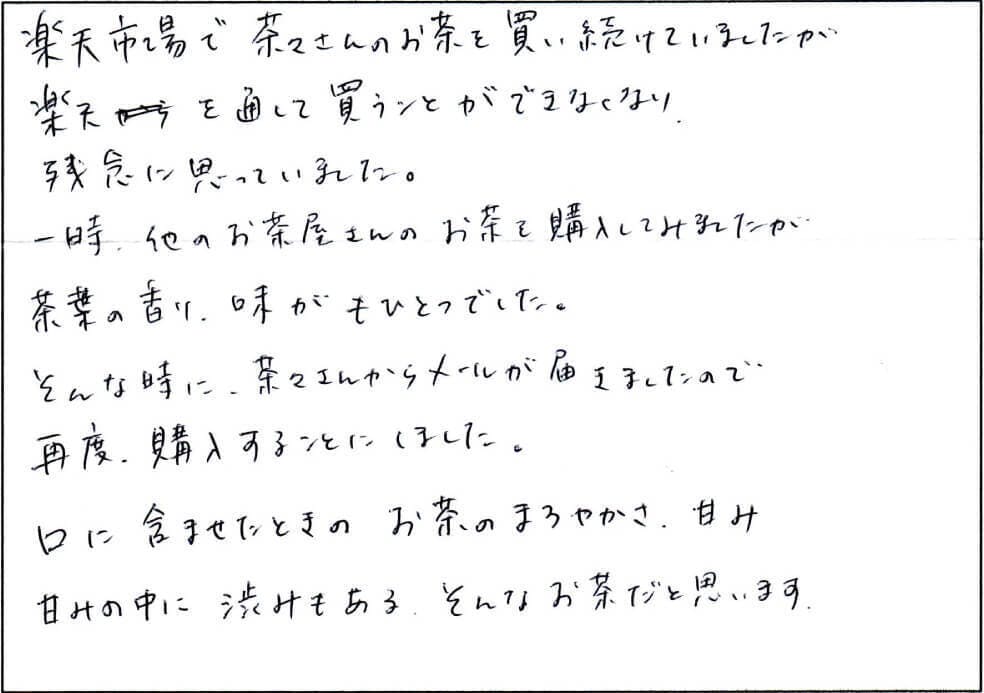 楽天市場で茶々さんのお茶を買い続けていましたが
楽天を通して買うことができなくなり、
残念に思っていました。
一時、他のお茶屋さんのお茶を購入してみましたが
茶葉の香り、味がもひとつでした。
そんな時に、茶々さんからメールが届きましたので
再度、購入することにしました。
口に含ませたときのお茶のまろやかさ、甘み
甘みの中に渋みもある、そんなお茶だと思います。